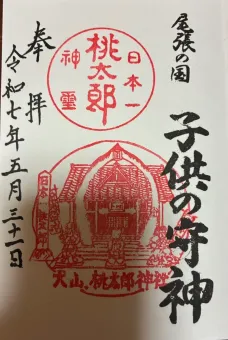 尾張の国
子供の守神
日本一
桃太郎
神霊
犬山・桃太郎神社
奉拝
令和七年五月三十一日